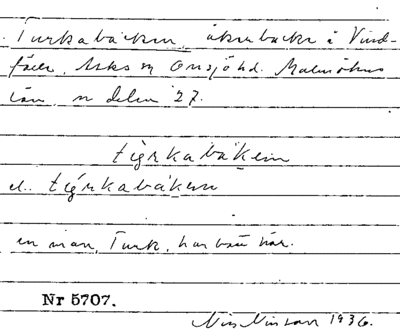 Turkabacken, åkerbacke i Vind-
fäll, Asks sn Onsjö hd. Malmöhus
län, n delen 27.
el.
en man, Turk, har bott här.
Nr 5707.
Nils Nilsson 1936.